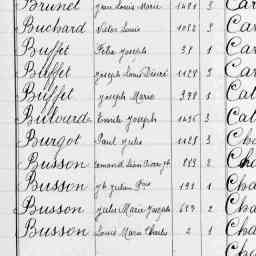 Brunel Jean Louis Marie 1481 3 Car
Buchard Victor Louis 1082 3 Car
Buffet Félix Joseph 38 1 Car
Buffet Joseph Louis Désiré 1129 3 Car
Buffet Joseph Marie 398 1 Cat
Emile Joseph 1495 3 Cat
Burgot Paul Jules 1128 3 Cha
Busson Jean 813 2 Cha
Busson Julien 191 1 Cha
Busson Jules Marie Joseph 2 Cha
Busson Louis Marie Charles 2 1 Cha
Cha